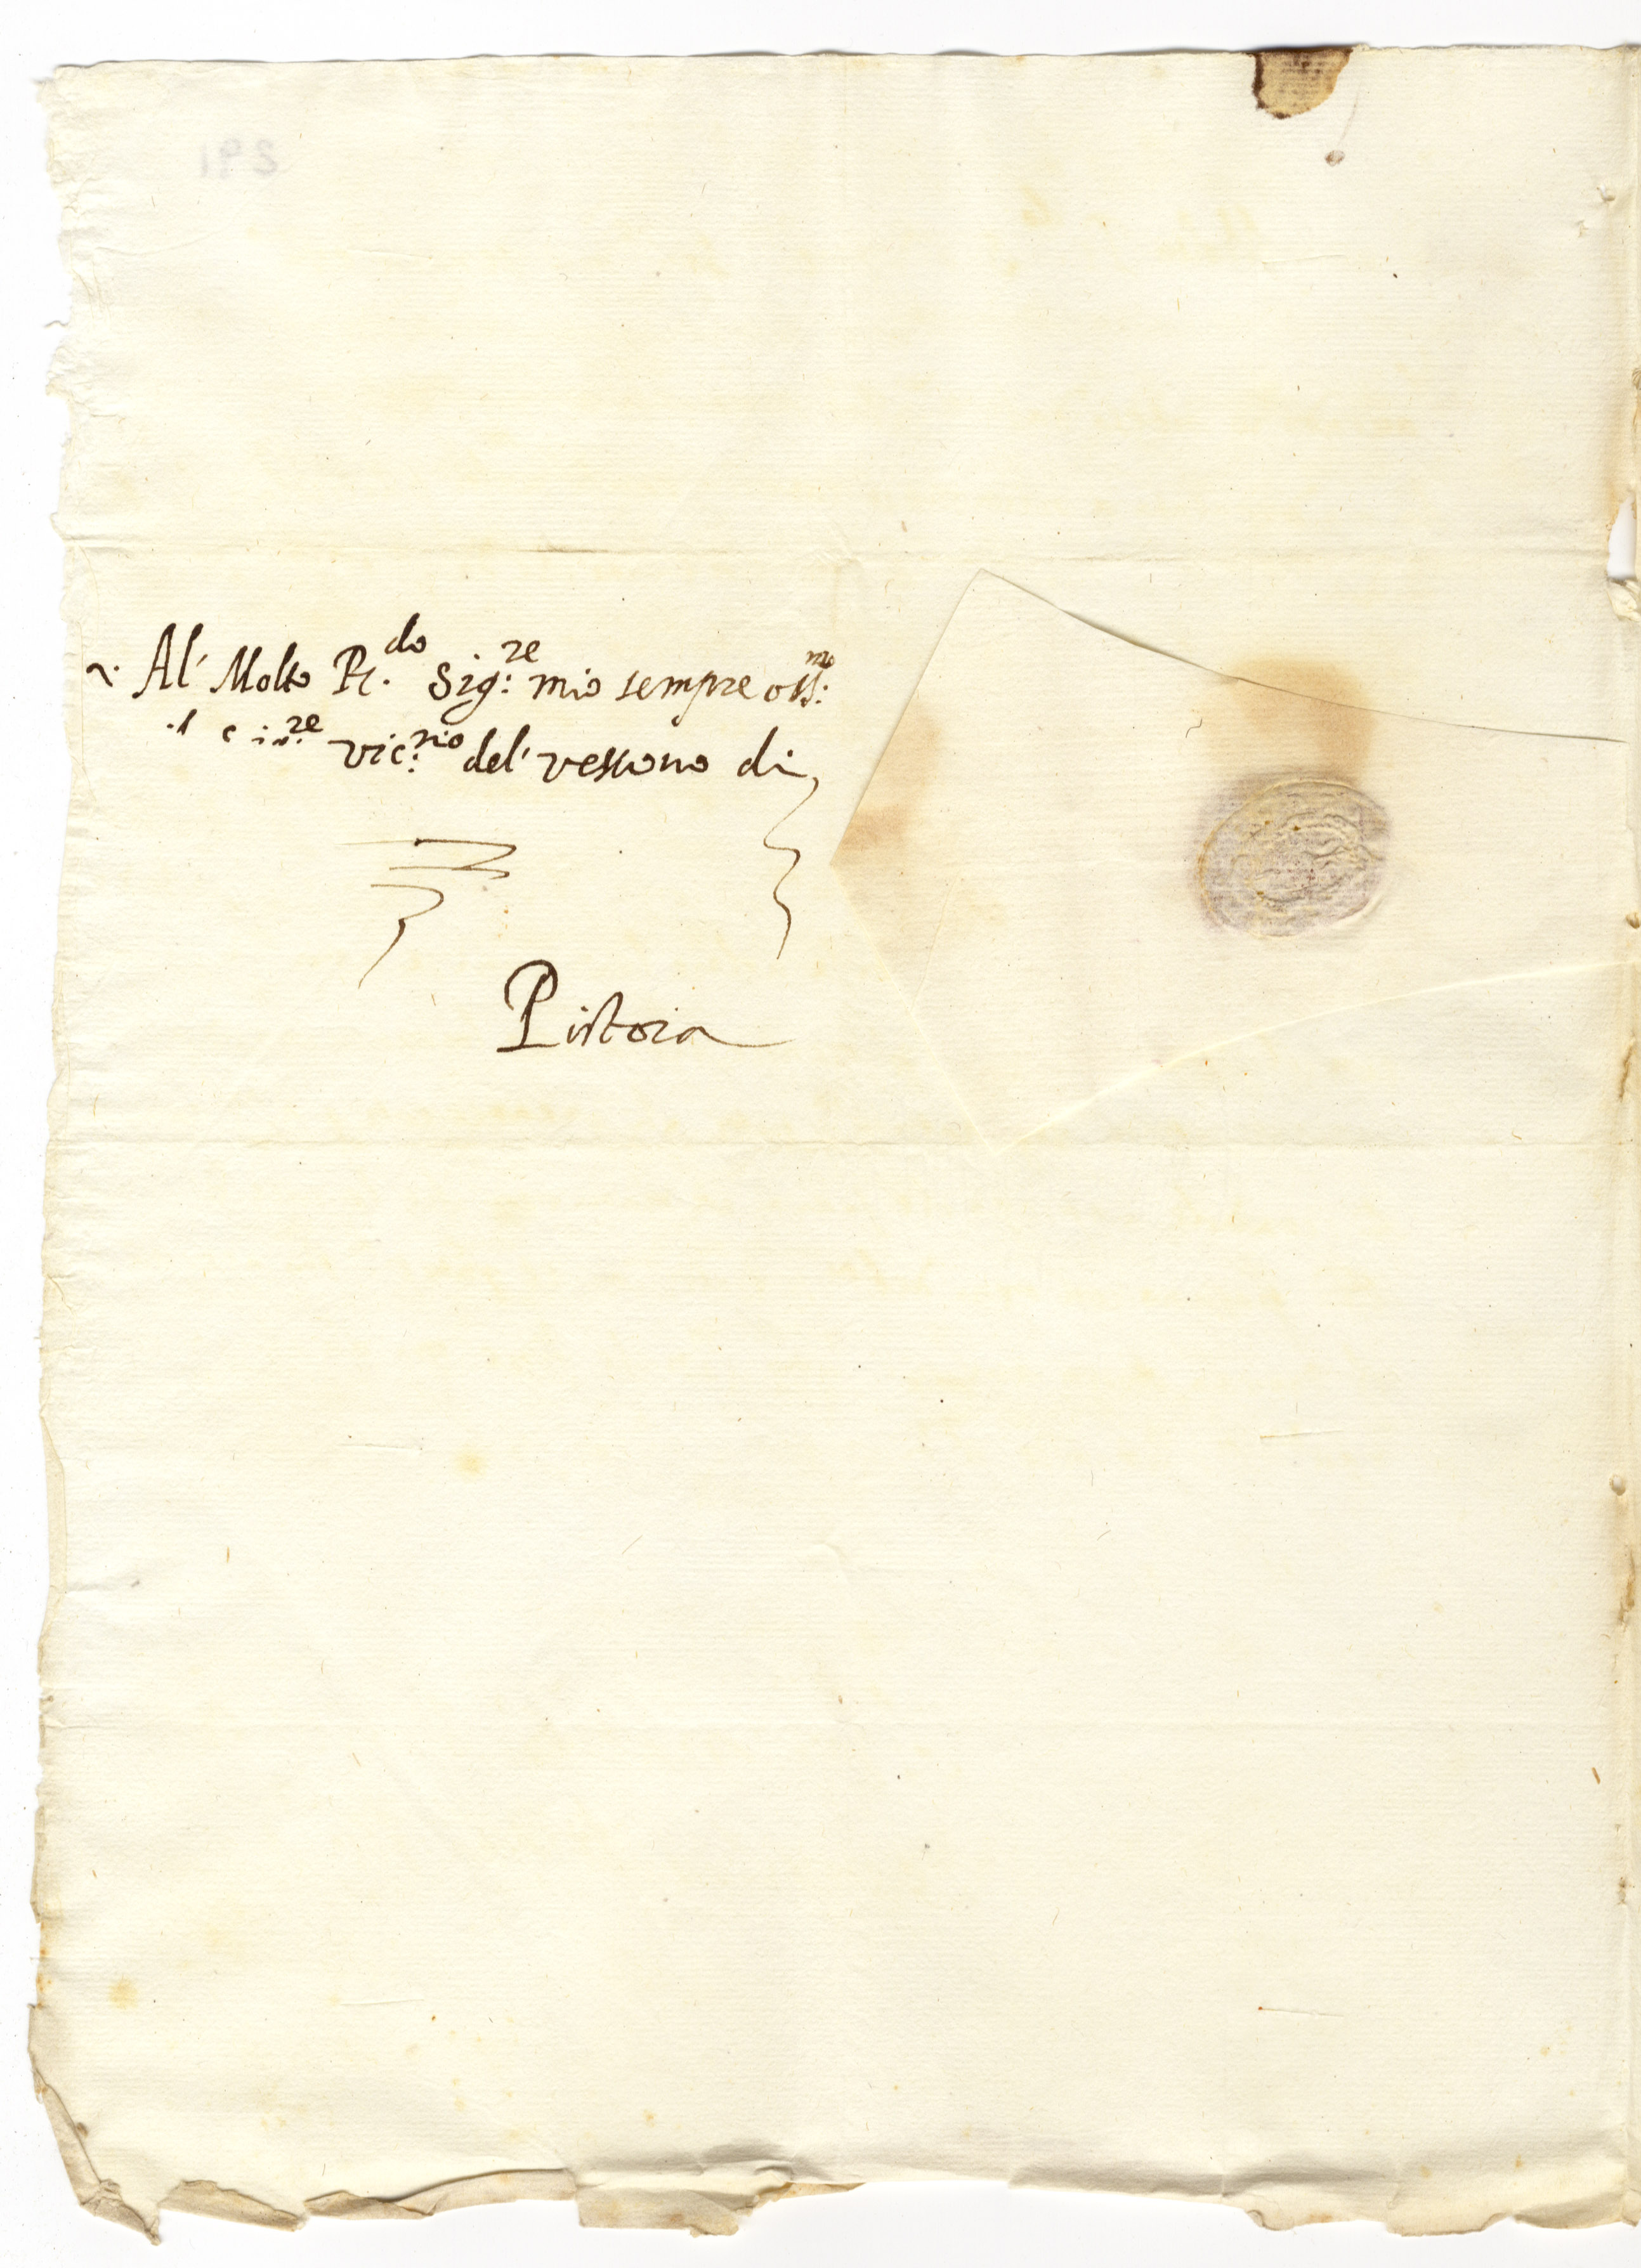 Al' Molto R.do Sig:re mio sempre oss:mo
il Sig:re vic:rio del' vescovo di
Pistoia